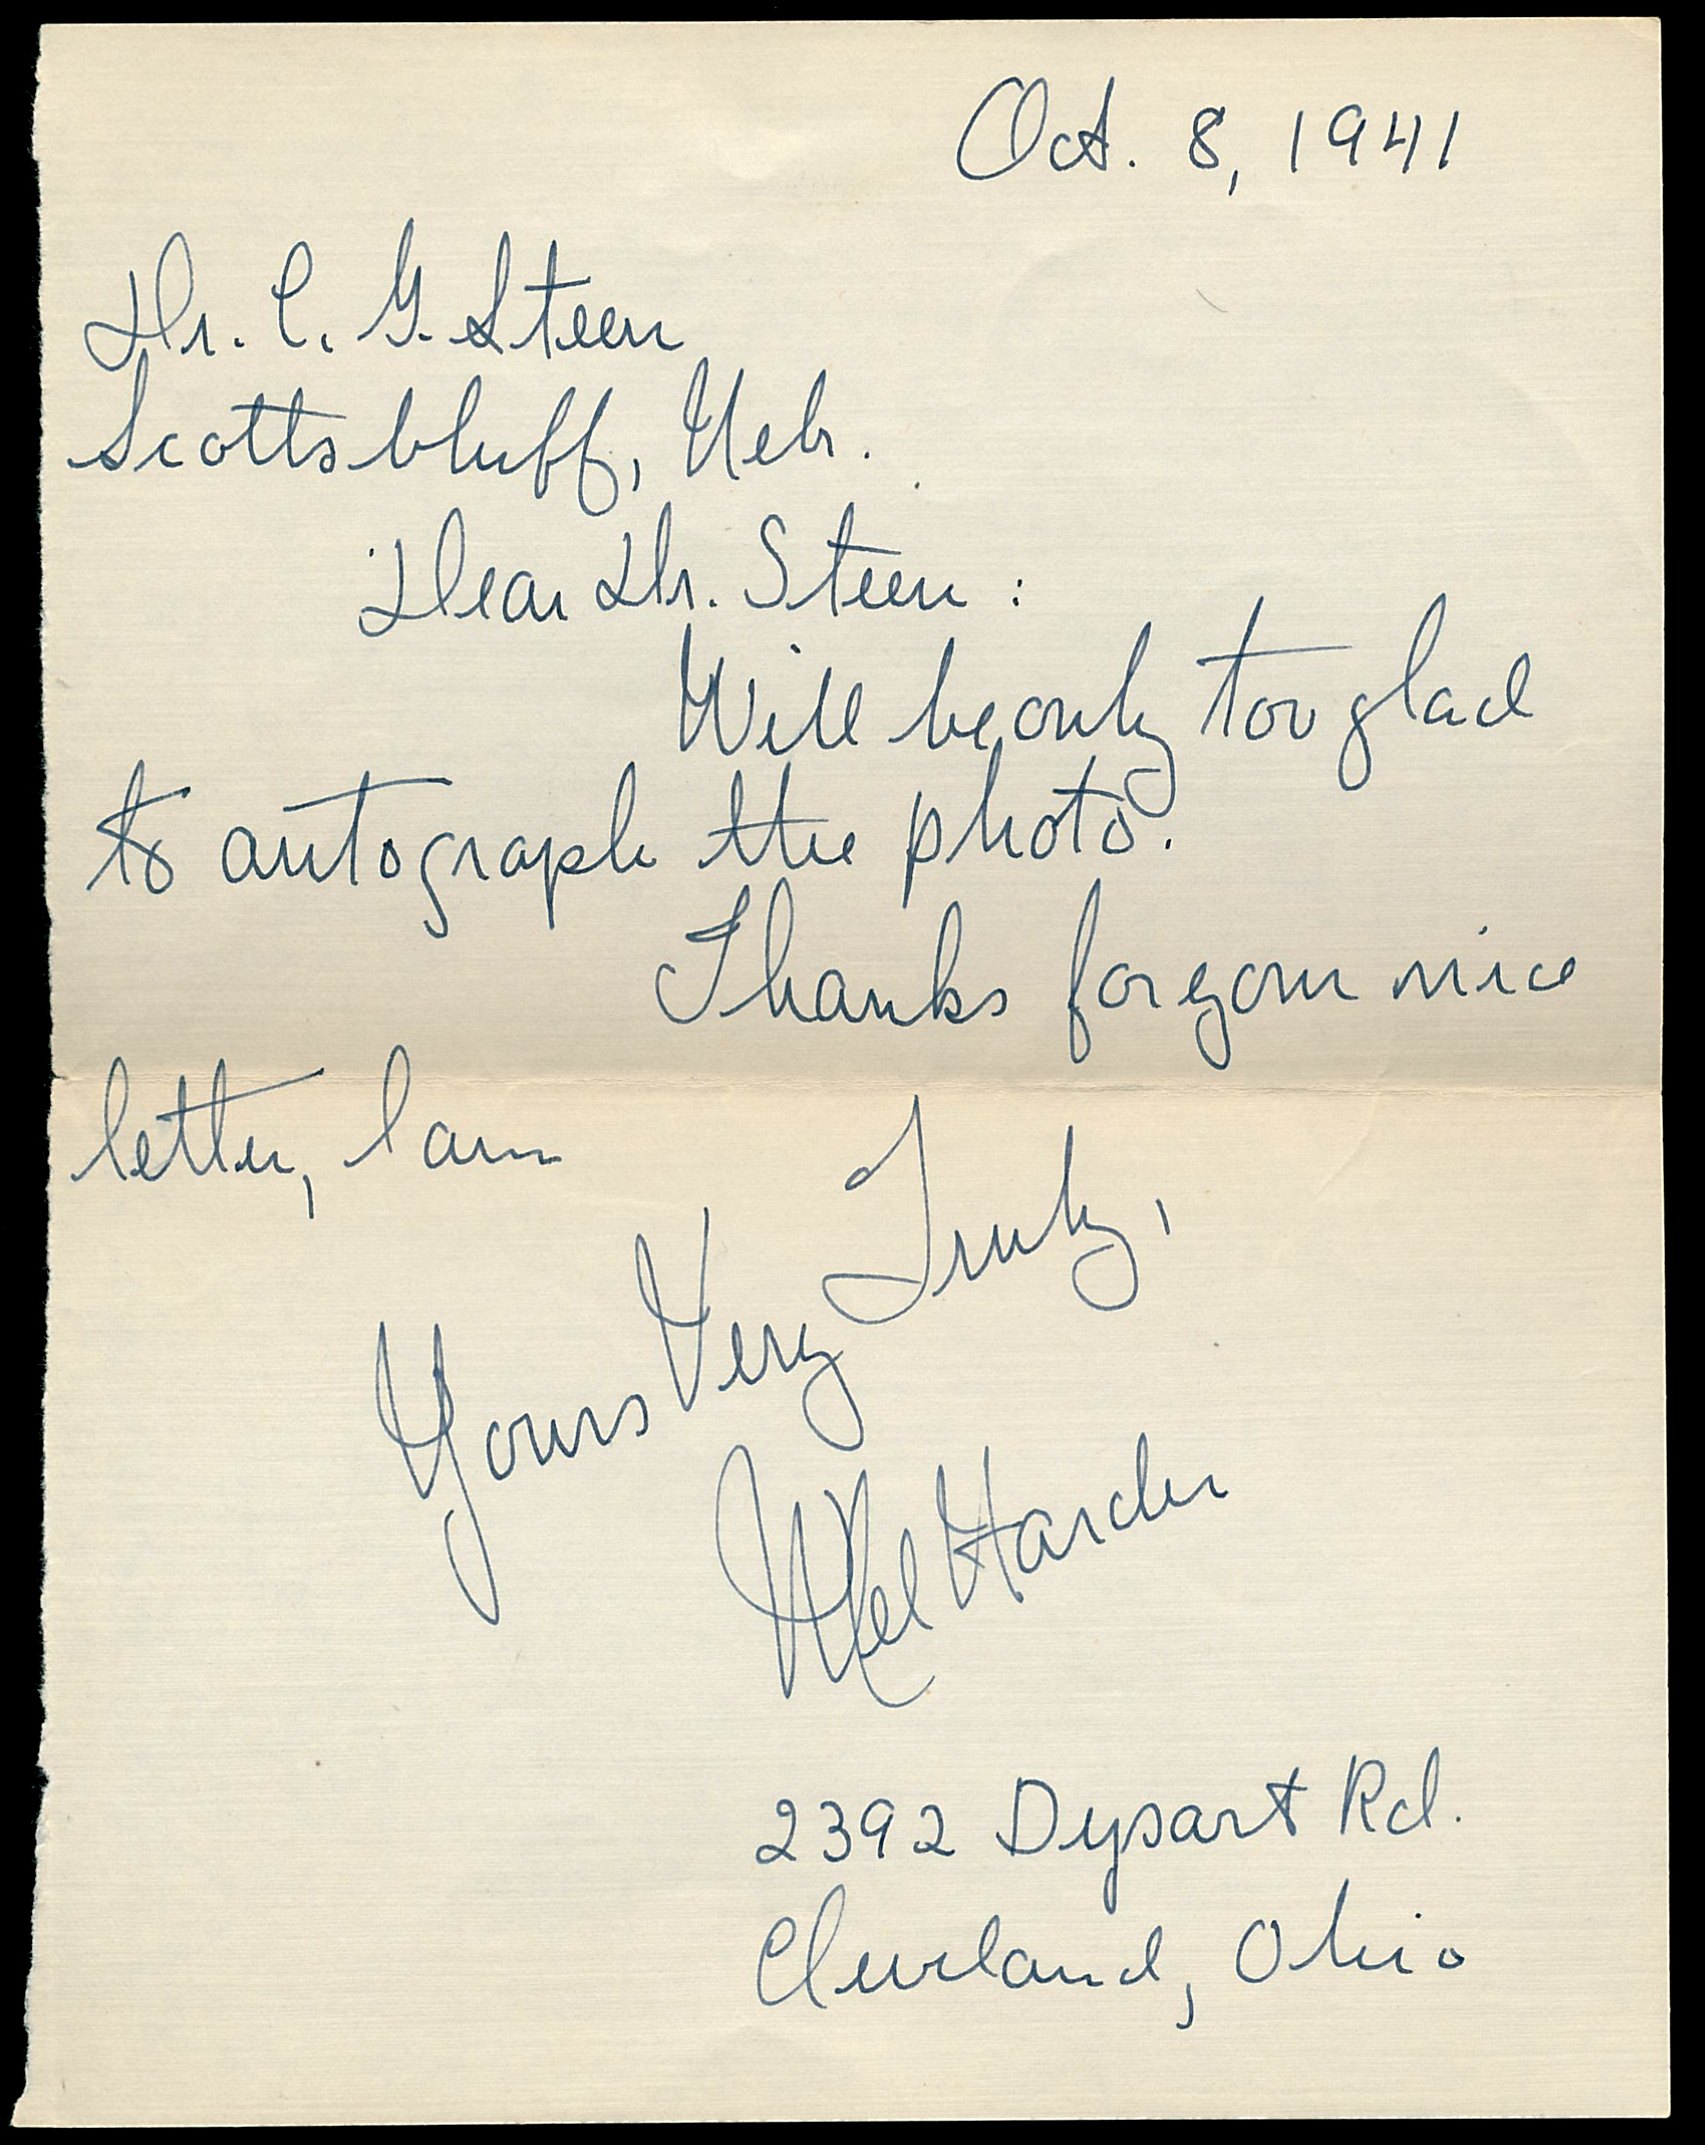 Oct. 8, 1941
Dr. C. G. Steen
Scottsbluff, Nebr.
Dear Dr. Steen:
Will be only too glad
to autograph the photo.
Thanks for your nice
letter, I am
Yours Very Truly,
Mel Harder
2392 Dysart Rd.
Cleveland, Ohio